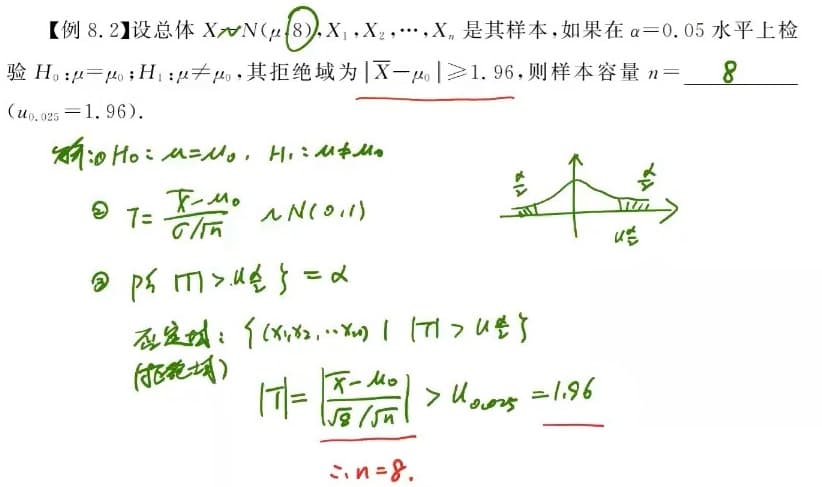 【例 8.2】设总体 X~N(μ,8),X₁,X₂,…,Xₙ 是其样本,如果在 α=0.05 水平上检
验 H₀:μ=μ₀;H₁:μ≠μ₀,其拒绝域为|X̄-μ₀|≥1.96,则样本容量 n= 8
(u₀.₀₂₅=1.96).
① H₀: μ=μ₀, H₁: μ≠μ₀
② T= (X̄-μ₀)/(σ/√n) ~N(0,1)
α/2 α/2
u α/2
③ P{ |T| > u α/2 } = α
否定域: {(x₁,x₂,…xₙ) | |T| > u α/2 }
(拒绝域)
|T|= |(X̄-μ₀)/(√8/√n)| > u₀.₀₂₅ =1.96
∴ n=8.